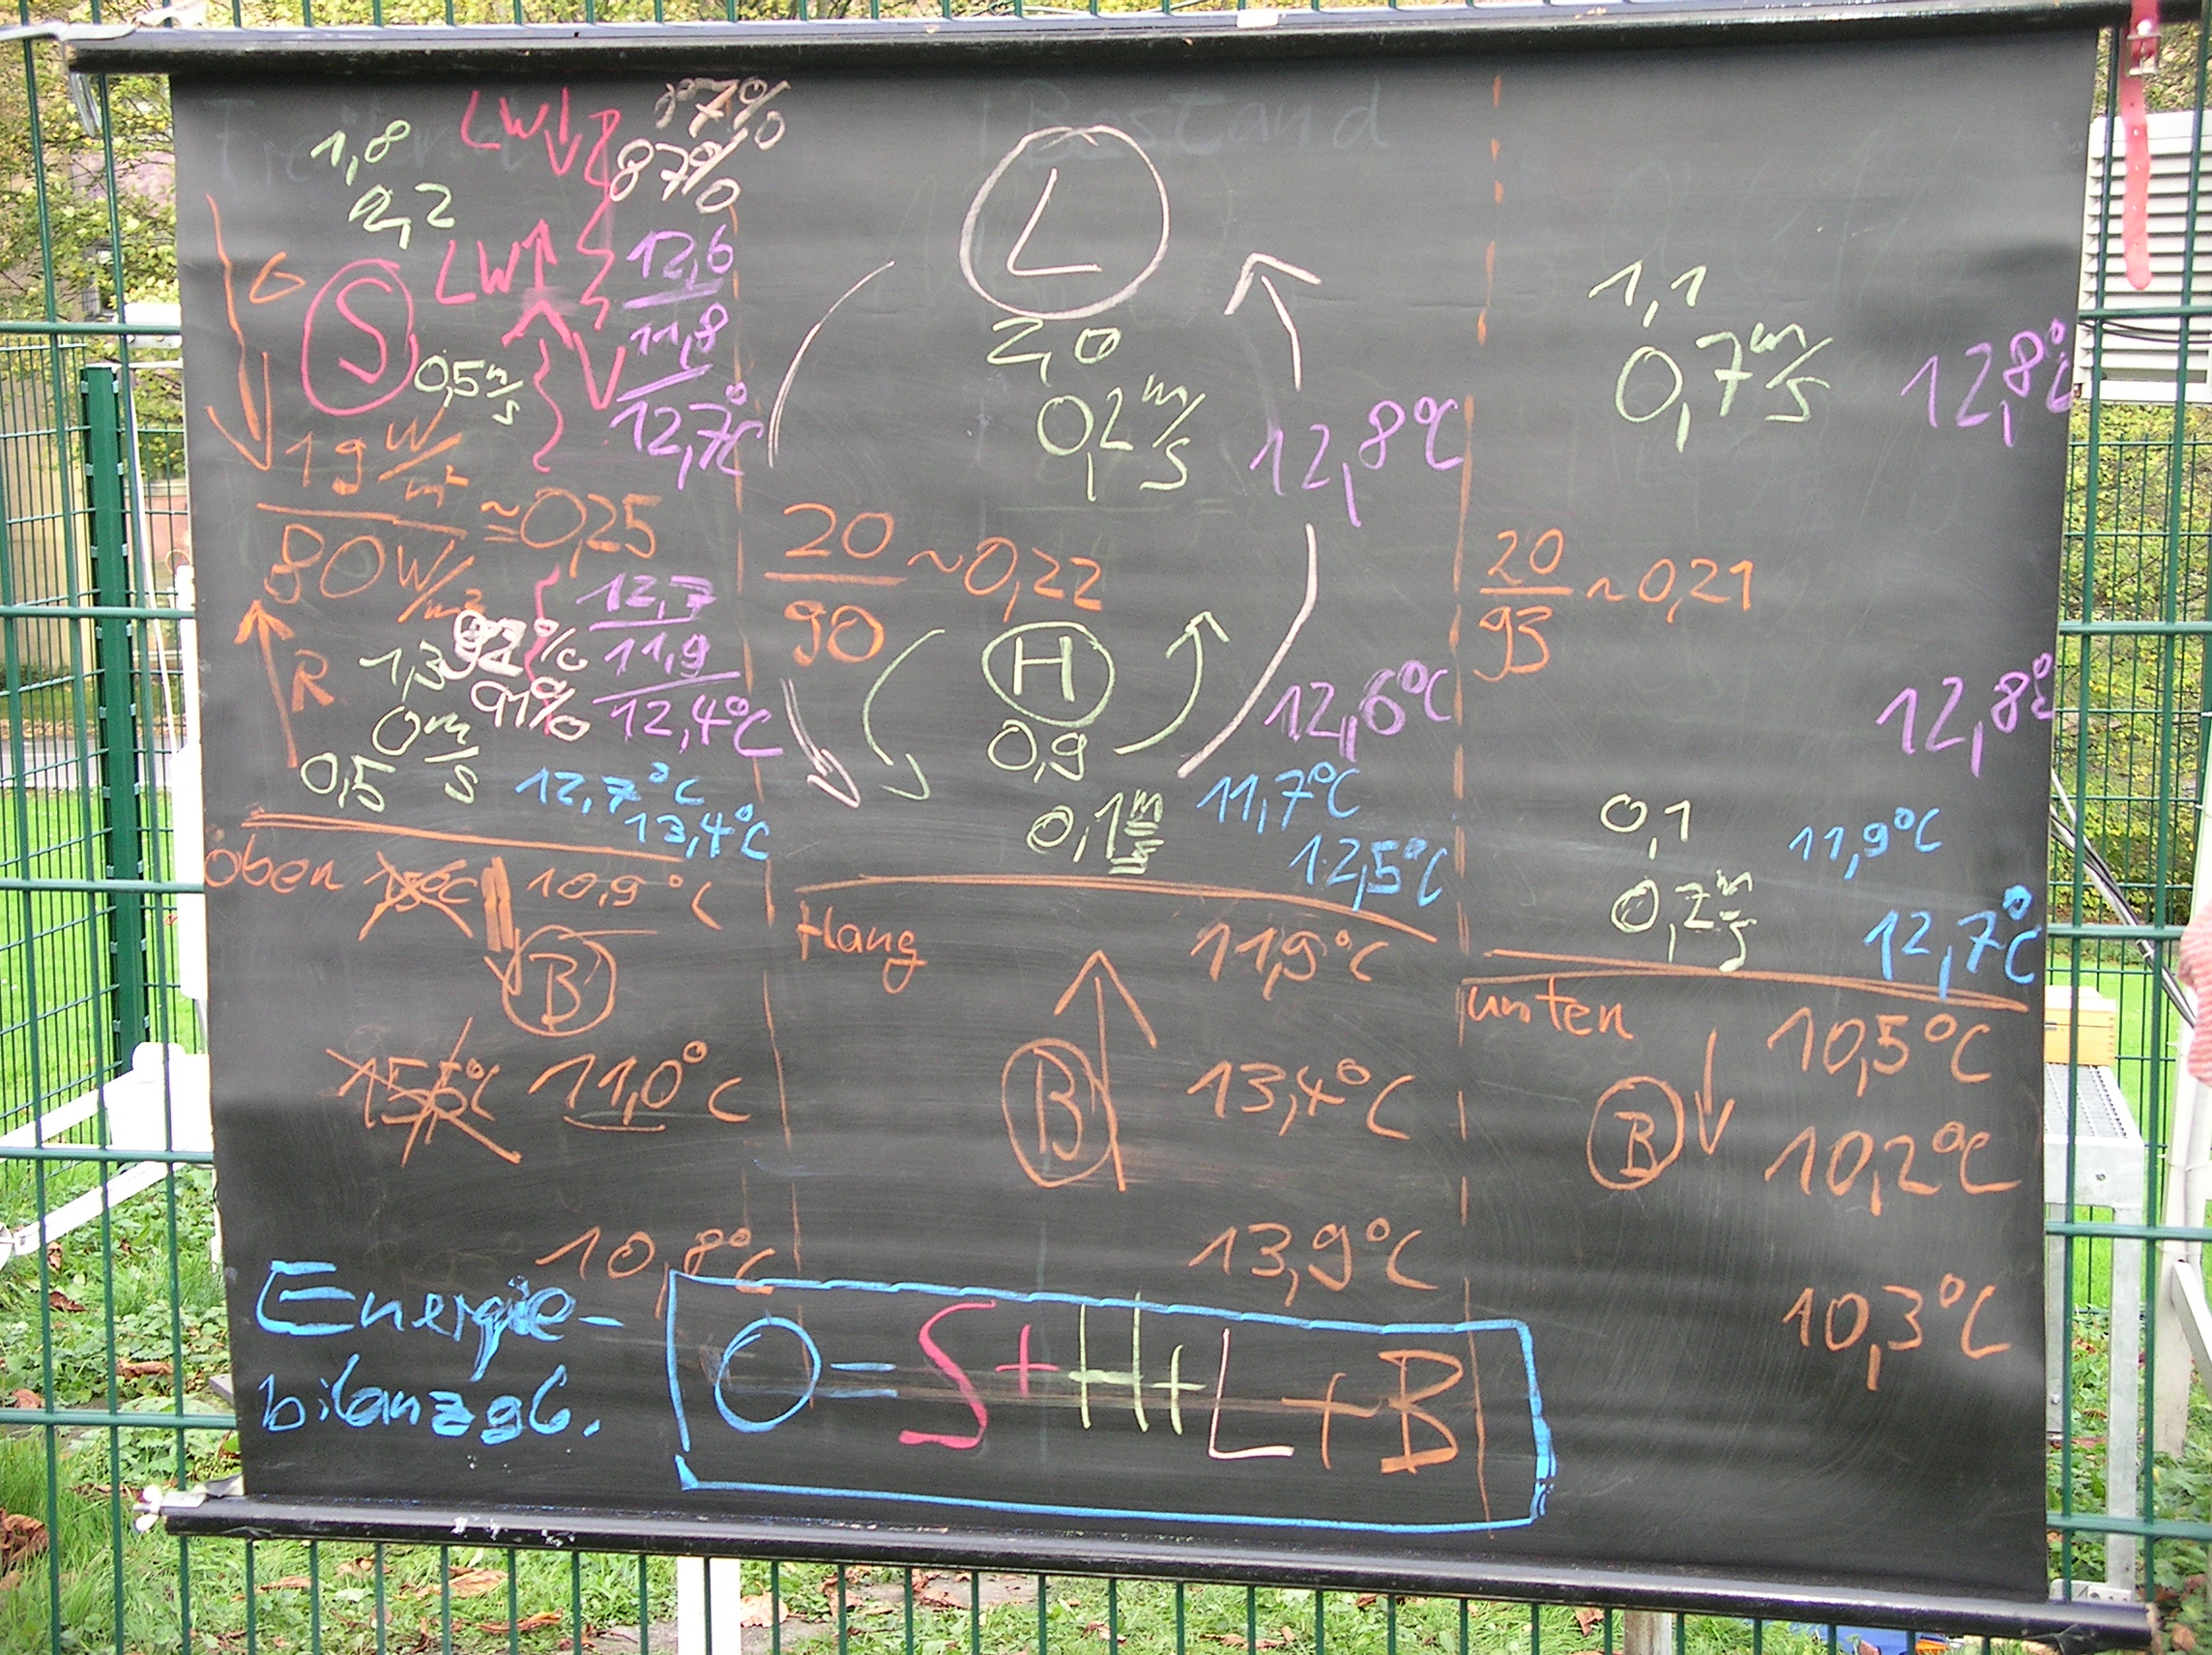 Bestand
1,8
LW↓
87%
2,2
LW↑
12,6
G
S
0,5 m/s
11,8
12,7°C
19 W/m²
80 W/m²
≈0,25
12,7
11,9
12,4°C
R
1,3
91%
0 m/s
0,5
12,7°C
13,4°C
L
2,0
0,2 m/s
12,8°C
20
90
~0,22
H
0,9
0,1 m/s
12,6°C
11,7°C
12,5°C
1,1
0,7 m/s
12,8°C
20
93
~0,21
12,8°C
0,1
0,2 m/s
11,9°C
12,7°C
oben
15°C
10,9°C
B
15,5°C
11,0°C
10,8°C
Hang
11,9°C
B
13,4°C
13,9°C
unten
10,5°C
B
10,2°C
10,3°C
Energie-
bilanzgl.
0=S+H+L+B